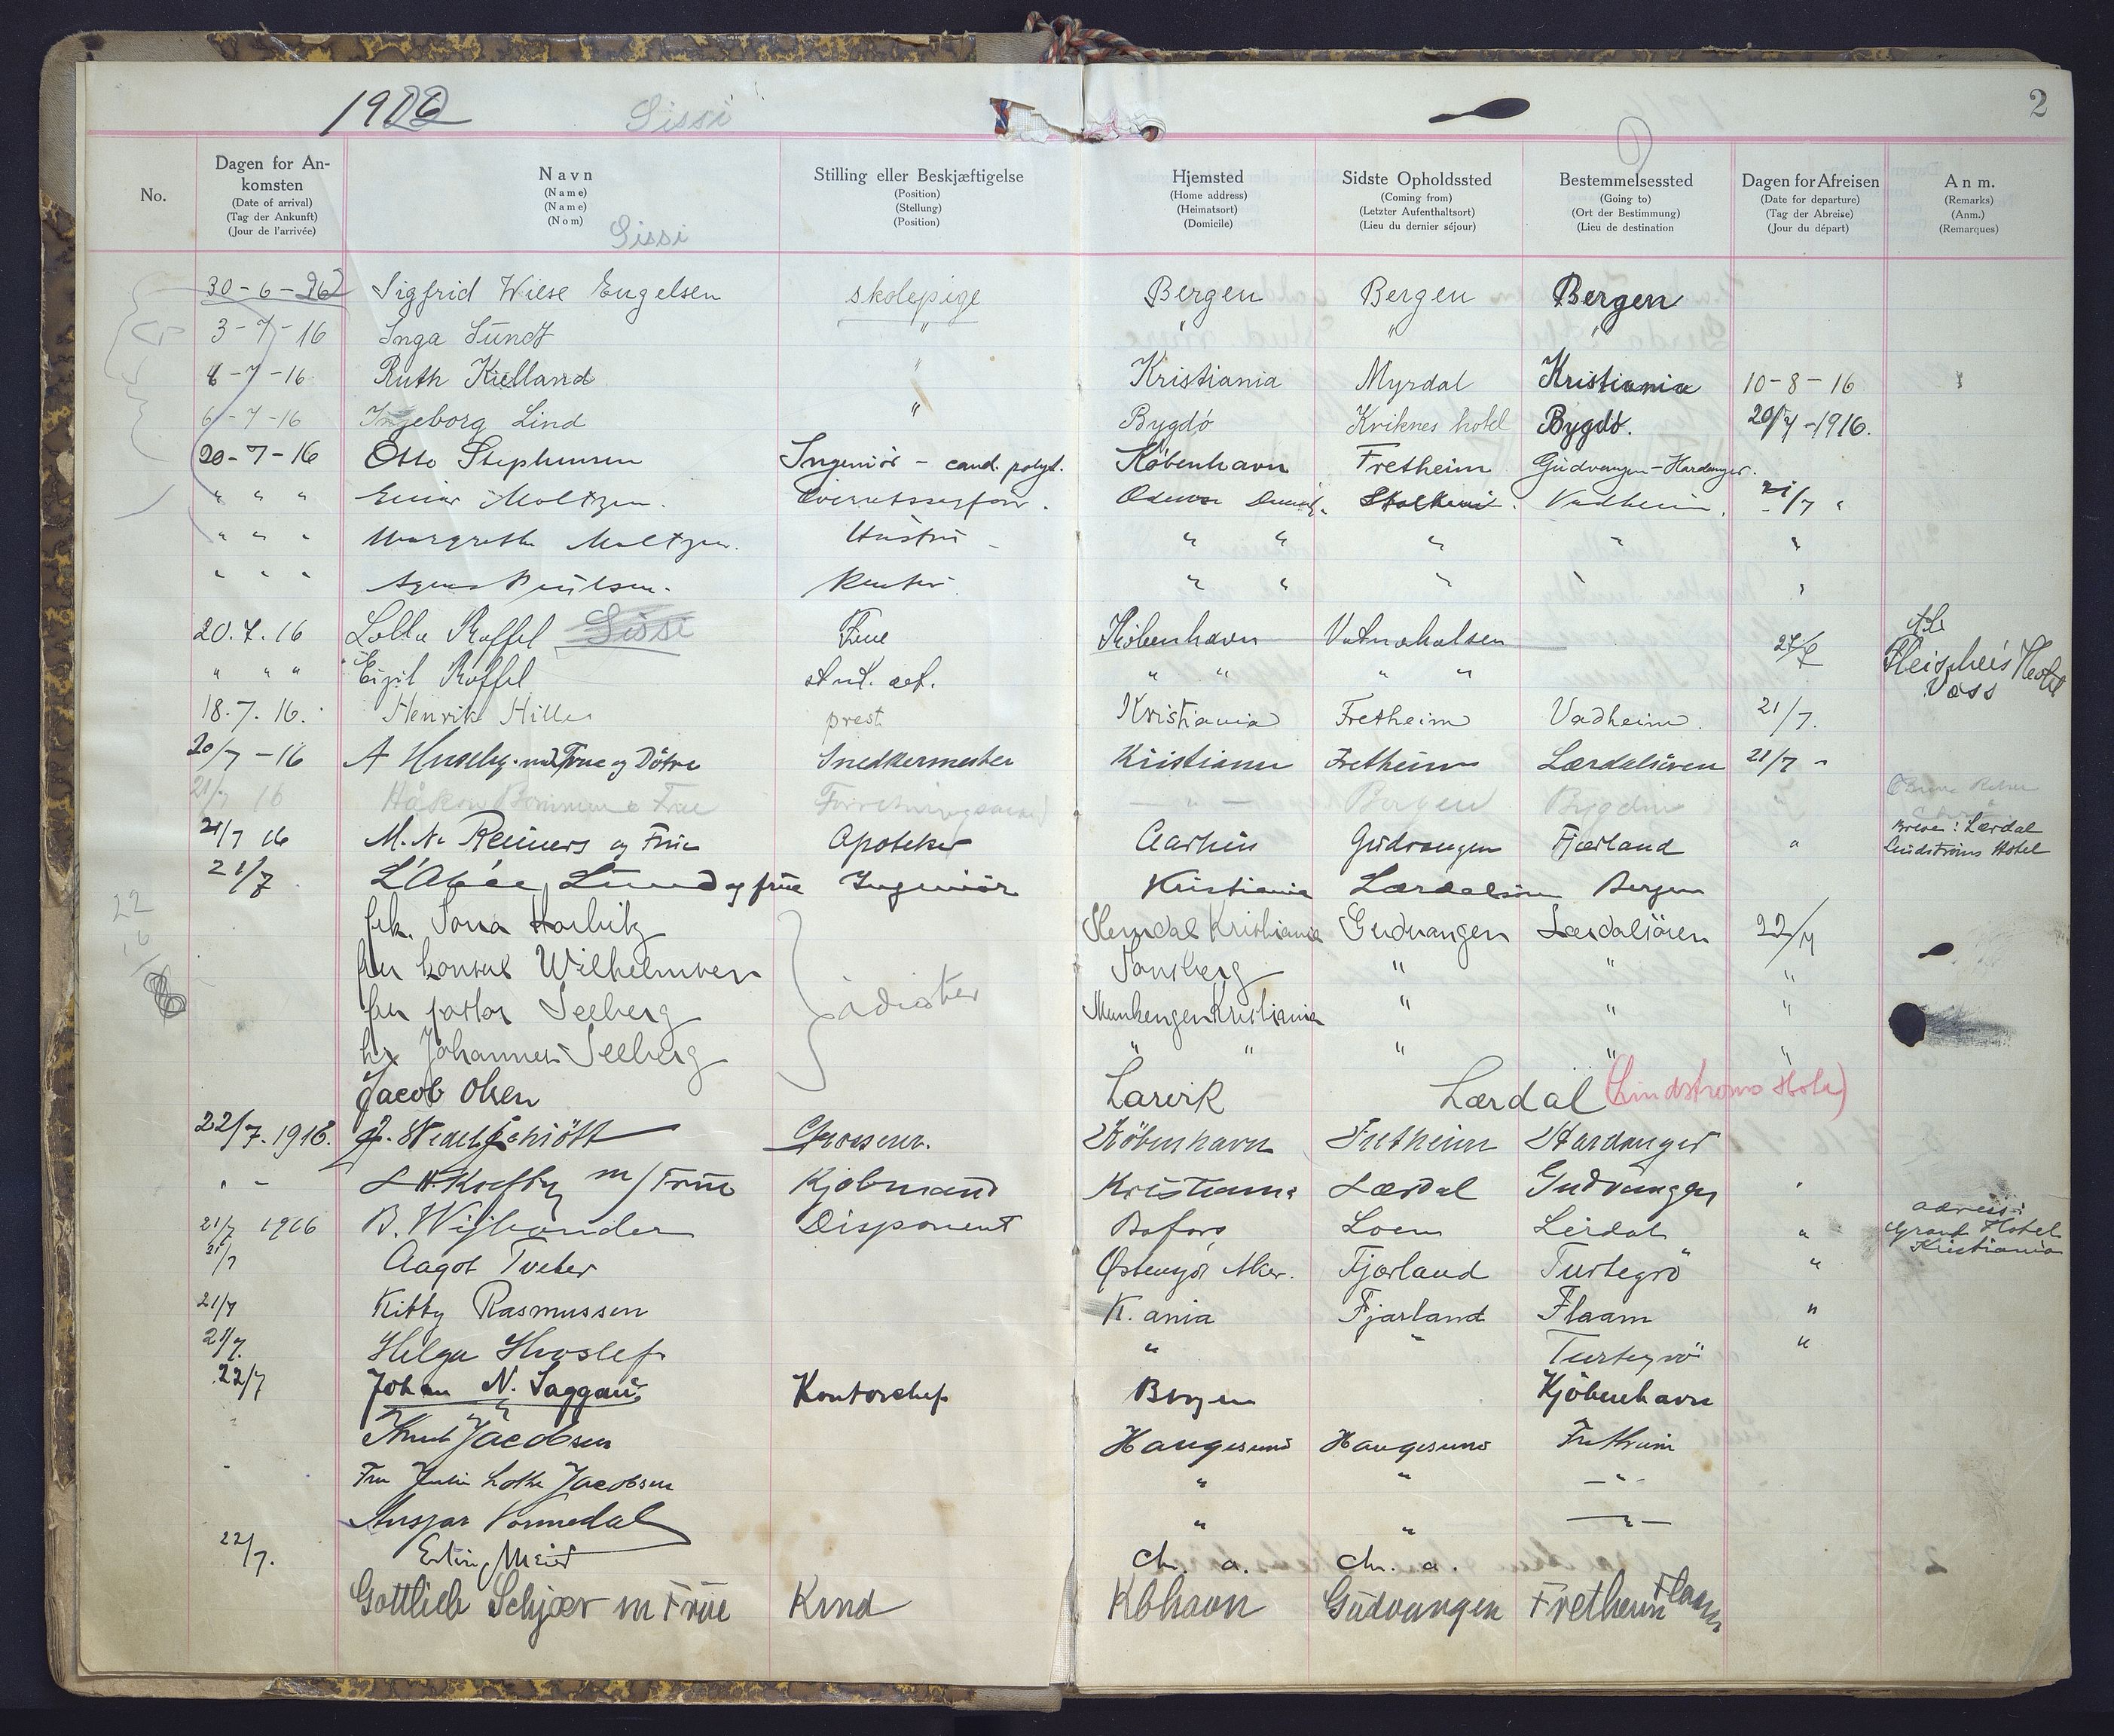 2
Sissi
No.
Dagen for An-
komsten
(Date of arrival)
(Tag der Ankunft)
(Jour de l'arrivée)
Navn
(Name)
(Name)
(Nom)
Sissi
Stilling eller Beskjæftigelse
(Position)
(Stellung)
(Position)
Hjemsted
(Home address)
(Heimatsort)
(Domicile)
Sidste Opholdssted
(Coming from)
(Letzter Aufenthaltsort)
(Lieu du dernier séjour)
Bestemmelsessted
(Going to)
(Ort der Bestimmung)
(Lieu de destination
Dagen for Afreisen
(Date for departure)
(Tag der Abreise)
(Jour du départ)
Anm.
(Remarks)
(Anm.)
(Remarques)
30-6- Sigfrid Wiese Engelsen skolepige Bergen Bergen Bergen
3-7-16 Inga Sundt " " " "
-7-16 Ruth Kielland " Kristiania Myrdal Kristiania 10-8-16
6-7-16 Ingeborg Lind " Bygdö Kviknes hotel Bygdö. 20/7-1916.
20-7-16 Otto Stephensen Ingeniör - cand. polyt. København Fretheim Gudvangen-Hardanger.
" " " Einar Moltzen. Odense Stalheim. Vadheim. 21/7 "
" " " Margrethe Moltzen. Hustru " " " " "
" " " Agnes Poulsen. " " " " "
20.7.16 Lolla Roffel Sissi Frue København Vatnahalsen
" " " Eigil Roffel " " " " Fleischers Hotel
Voss
18.7.16. Henrik Hille prest Kristiania Fretheim Vadheim. 21/7.
20/7-16 A Huseby. med Frue og Döttre Snedkermester Kristiania Fretheim Lærdalsören 21/7 "
21/7 16 Håkon Frue - " - Bergen Bygdin "
21/7 16 M. N. Reimers og Frue Apoteker Aarhus Gudvangen Fjærland " Breve: Lærdal
Lindströms Hotel
21/7 L'Abée Lund og frue Ingeniör Kristiania Lærdalsören Bergen
frk. Kristiania Gudvangen Lærdalsören 22/7
fru konsul Wilhelmsen Tönsberg " " "
fru pastor Seeberg idioter Munkengen Kristiania " " "
hr Johannes Seeberg " " " " "
Jacob Olsen Larvik Lærdal (Lindstrøms Hotel)
22/7.1916. Grosserer. København Fretheim Hardanger
" - m/Frue Kjøbmand Kristiania Lærdal Gudvangen "
21/7 1916 B. Wijkander Disponent Bofors Loen Lerdal " adress:
Grand Hotel
Kristiania
21/7 Aagot Tveter Aker. Fjærland Turtegrö "
21/7 Kitty Rasmussen K.ania Fjærland Flaam "
21/7. Helga Hvoslef " " Turtegrö "
22/7 Johan N. Saggau Kontorchef Bergen Kjöbenhavn
Knut Jacobsen Haugesund Haugesund Fretheim
Fru Jacobsen " " - " -
Ansgar Vormedal " " - " -
22/7. Meier Chr. a. Chr. a.
Gottlieb Schjær m Frue Kbhavn Gudvangen Fretheim Flaam